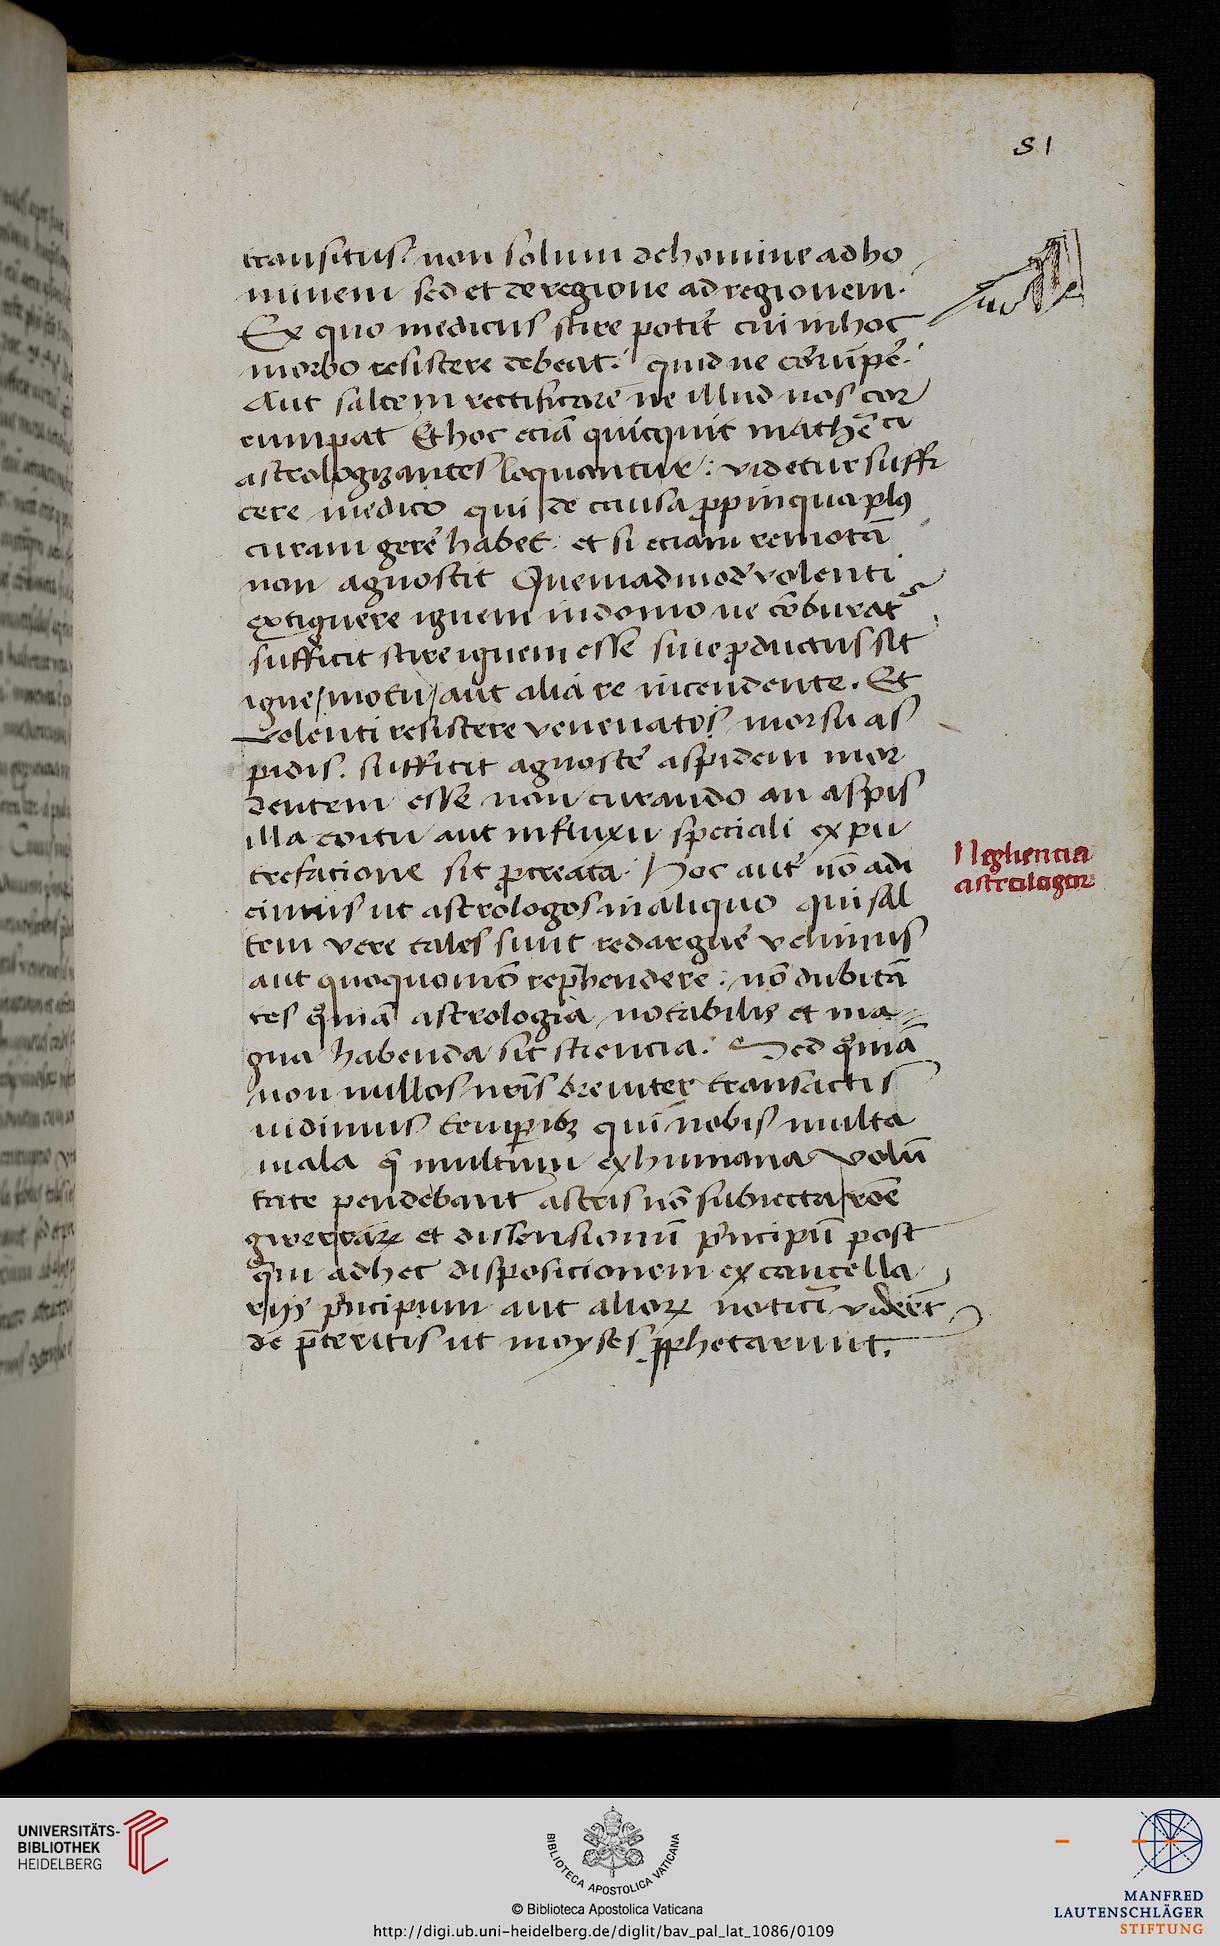 51
transitus. non solum de homine ad ho
minem sed et de regione ad regionem.
Ex quo medicus scire poterit cui in hoc
morbo resistere debeat. quid ne corrūpē.
Aut saltem rectificare ne illud nos cor
rumpat Et hoc eciā quicquit mathēci
astrologizantes loquantur: videtur suffi
cere medico qui de causa ꝓpinqua plus
curam gerē habet. et si eciam remotā
non agnoscit Quemadmodū volenti
extiguere ignem in domo ne cōburatur
sufficit scire ignem esse siue ꝓductus sit
igne/motu/aut alia re incendente. Et
volenti resistere venenatois morsu as
pidis. sufficit agnoscē aspidem mor
dentem esse non curando an aspis
illa coitu aut influxu speciali ex pu
trefacione sit ꝓcreata. Hoc autē nō adi
cimus ut astrologos in aliquo qui sal
tem vere tales sunt redarguē velimus
aut quoquomō rephendere: nō dubitā
tes qmā astrologia notabilis et ma-
gna habenda sit sciencia. Sed qmā
non nullos nrīs breuiter transactis
uidimus temꝑibꝫ qui nobis multa
mala q̄ multum ex humana volū
tate pendebant astris nō subiecta rōe
gwerraꝝ et dissensionū pncipū post
qm̄ adhec disposicionem ex cancella
rijs pncipum aut alioꝝ noticiā viderēt
de p̄teritis ut moyses ꝓphetarunt.
Negliencia
astrologoꝝ
UNIVERSITÄTS-
BIBLIOTHEK
HEIDELBERG
BIBLIOTECA APOSTOLICA VATICANA
© Biblioteca Apostolica Vaticana
http://digi.ub.uni-heidelberg.de/diglit/bav_pal_lat_1086/0109
MANFRED
LAUTENSCHLÄGER
STIFTUNG